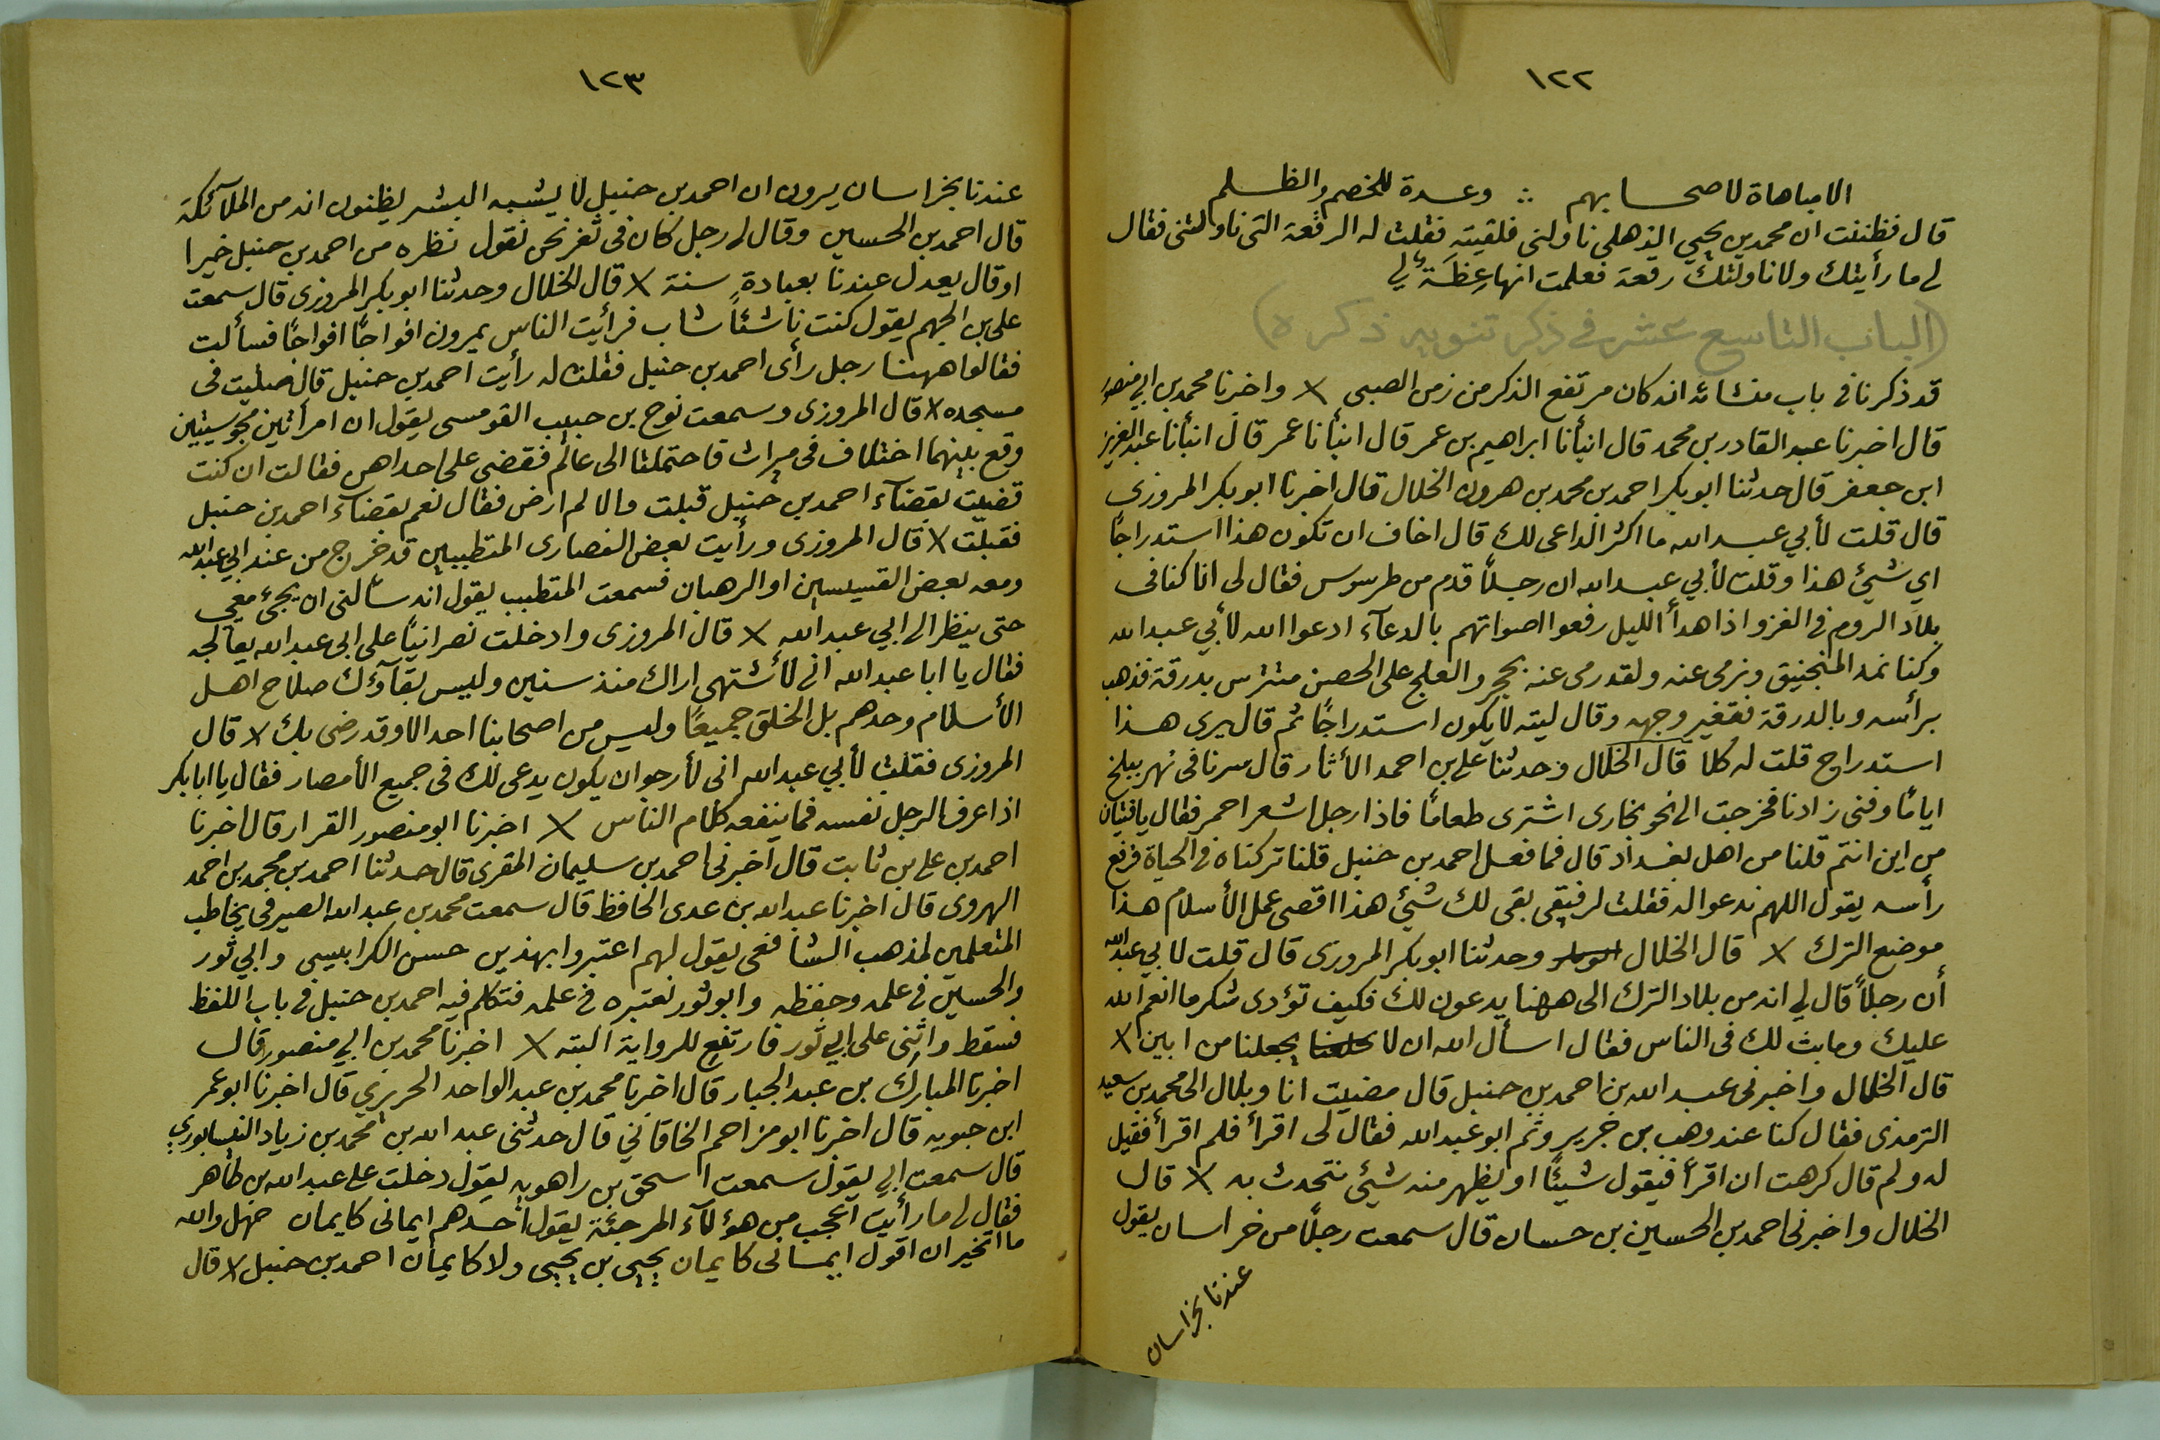 ١٢٢
الا مباهاة لاصحابهم ∴ وعدة للخصم والظلم
قال فظننت ان محمد بن يحيي الذهلي ناولني فلقيته فقلت له الرقعة التي ناولتني فقال
لي ما رأيتك ولا ناولتك رقعة فعلمت انها عظة لي
(الباب التاسع عشر في ذكر تنويه ذكره)
قد ذكرنا في باب منشائه انه كان مرتفع الذكر من زمن الصبى X واخبرنا محمد بن ابي منصور
قال اخبرنا عبد القادر بن محمد قال انبأنا ابراهيم بن عمر قال انبأنا عمر قال انبأنا عبد العزيز
ابن جعفر قال حدثنا ابو بكر احمد بن محمد بن هرون الخلال قال اخبرنا ابو بكر المروزي
قال قلت لأبي عبد الله ما اكثر الداعي لك قال اخاف ان تكون هذا استدراجًا
اي شيئ هذا وقلت لأبي عبد الله ان رجلاً قدم من طرسوس فقال لي انا كنا في
بلاد الروم في الغزو اذا هدأ الليل رفعوا اصواتهم بالدعآء ادعوا الله لأبي عبد الله
وكنا نمد المنجنيق ونرمي عنه ولقد رمى عنه بحجر والعلج على الحصن متترس بدرقة فذهب
برأسه وبالدرقة فتغير وجهه وقال ليته لا يكون استدراجًا ثم قال يرى هذا
استدراج قلت له كلا قال الخلال وحدثنا علي بن احمد الأثار قال سرنا في نهر ببلخ
ايامًا وفنى زادنا فخرجت الى نحو بخارى اشترى طعامًا فاذا رجل اشعر احمر فقال يا فتيان
من اين انتم قلنا من اهل بغداد قال فما فعل احمد بن حنبل قلنا تركناه في الحياة فرفع
رأسه يقول اللهم ندعوا له فقلت لرفيقي بقى لك شيئ هذا اقصى عمل الأسلام هذا
موضع الترك X قال الخلال وحدثنا ابو بكر المروزي قال قلت لابي عبد الله
أن رجلاً قال لي انه من بلاد الترك الى ههنا يدعون لك فكيف تؤدى شكر ما انعم الله
عليك وما بث لك في الناس فقال اسأل الله ان لا يجعلنا من ابين X
قال الخلال واخبرني عبد الله بن احمد بن حنبل قال مضيت انا وبلال الى محمد بن سعيد
الترمذي فقال كنا عند وهب بن جرير وثم ابو عبد الله فقال لى اقرأ فلم اقرأ فقيل
له ولم قال كرهت ان اقرأ فيقول شيئًا او يظهر منه شيئ نتحدث به X قال
الخلال واخبرني احمد بن الحسين بن حسان قال سمعت رجلاً من خراسان يقول
عندنا بخراسان
١٢٣
عندنا بخراسان يرون ان احمد بن حنبل لا يشبه البشر يظنون انه من الملآئكة
قال احمد بن الحسين وقال لي رجل كان في ثغر نحن نقول نظره من احمد بن حنبل خيرا
او قال يعدل عندنا بعبادة سنة X قال الخلال وحدثنا ابو بكر المروزي قال سمعت
علي بن الجهم يقول كنت ناشئاً شاب فرأيت الناس يمرون افواجًا افواجًا فسألت
فقالوا ههنا رجل رأى احمد بن حنبل فقلت له رأيت احمد بن حنبل قال صليت في
مسجده X قال المروزي وسمعت نوح بن حبيب القومسي يقول ان امرأتين مجوسيتين
وقع بينهما اختلاف في ميراث فاحتملتا الى عالم فقضى على احداهن فقالت ان كنت
قضيت بقضآء احمد بن حنبل قبلت والا لم ارض فقال نعم بقضآء احمد بن حنبل
فقبلت X قال المروزي ورأيت بعض النصارى المتطببين قد خرج من عند ابي عبد الله
ومعه بعض القسيسين او الرهبان فسمعت المتطبب يقول انه سألني ان يجيئ معي
حتى ينظر الى ابي عبد الله X قال المروزي وادخلت نصرانياً على ابي عبد الله يعالجه
فقال يا ابا عبد الله اني لأشتهي اراك منذ سنين وليس بقآؤك صلاح اهل
الأسلام وحدهم بل الخلق جميعًا وليس من اصحابنا احد الا وقد رضي بك X قال
المروزي فقلت لأبي عبد الله اني لأرجو ان يكون يدعى لك في جميع الأمصار فقال يا ابا بكر
اذا عرف الرجل نفسه فما ينفعه كلام الناس X اخبرنا ابو منصور القرار قال اخبرنا
احمد بن علي بن ثابت قال اخبرني احمد بن سليمان المقري قال حدثنا احمد بن محمد بن احمد
الهروي قال اخبرنا عبد الله بن عدي الحافظ قال سمعت محمد بن عبد الله الصيرفي يخاطب
المتعلمين لمذهب الشافعي يقول لهم اعتبروا بهذين حسن الكرابيسي وابي ثور
والحسين في علمه وحفظه وابو ثور نعتبره في علمه فتكلم فيه احمد بن حنبل في باب اللفظ
فسقط واثنى على ابي ثور فارتفع للرواية البتة X اخبرنا محمد بن ابي منصور قال
اخبرنا المبارك بن عبد الجبار قال اخبرنا محمد بن عبد الواحد الحريري قال اخبرنا ابو عمر
ابن حيويه قال اخبرنا ابو مزاحم الخاقاني قال حدثني عبد الله بن محمد بن زياد النيسابوري
قال سمعت ابي يقول سمعت اسحق بن راهويه يقول دخلت على عبد الله بن طاهر
فقال لي ما رأيت اعجب من هؤلآء المرجئة يقول احدهم ايماني كايمان جهل والله
ما اتخير ان اقول ايماني كايمان يحيى بن يحيى ولا كايمان احمد بن حنبل X قال